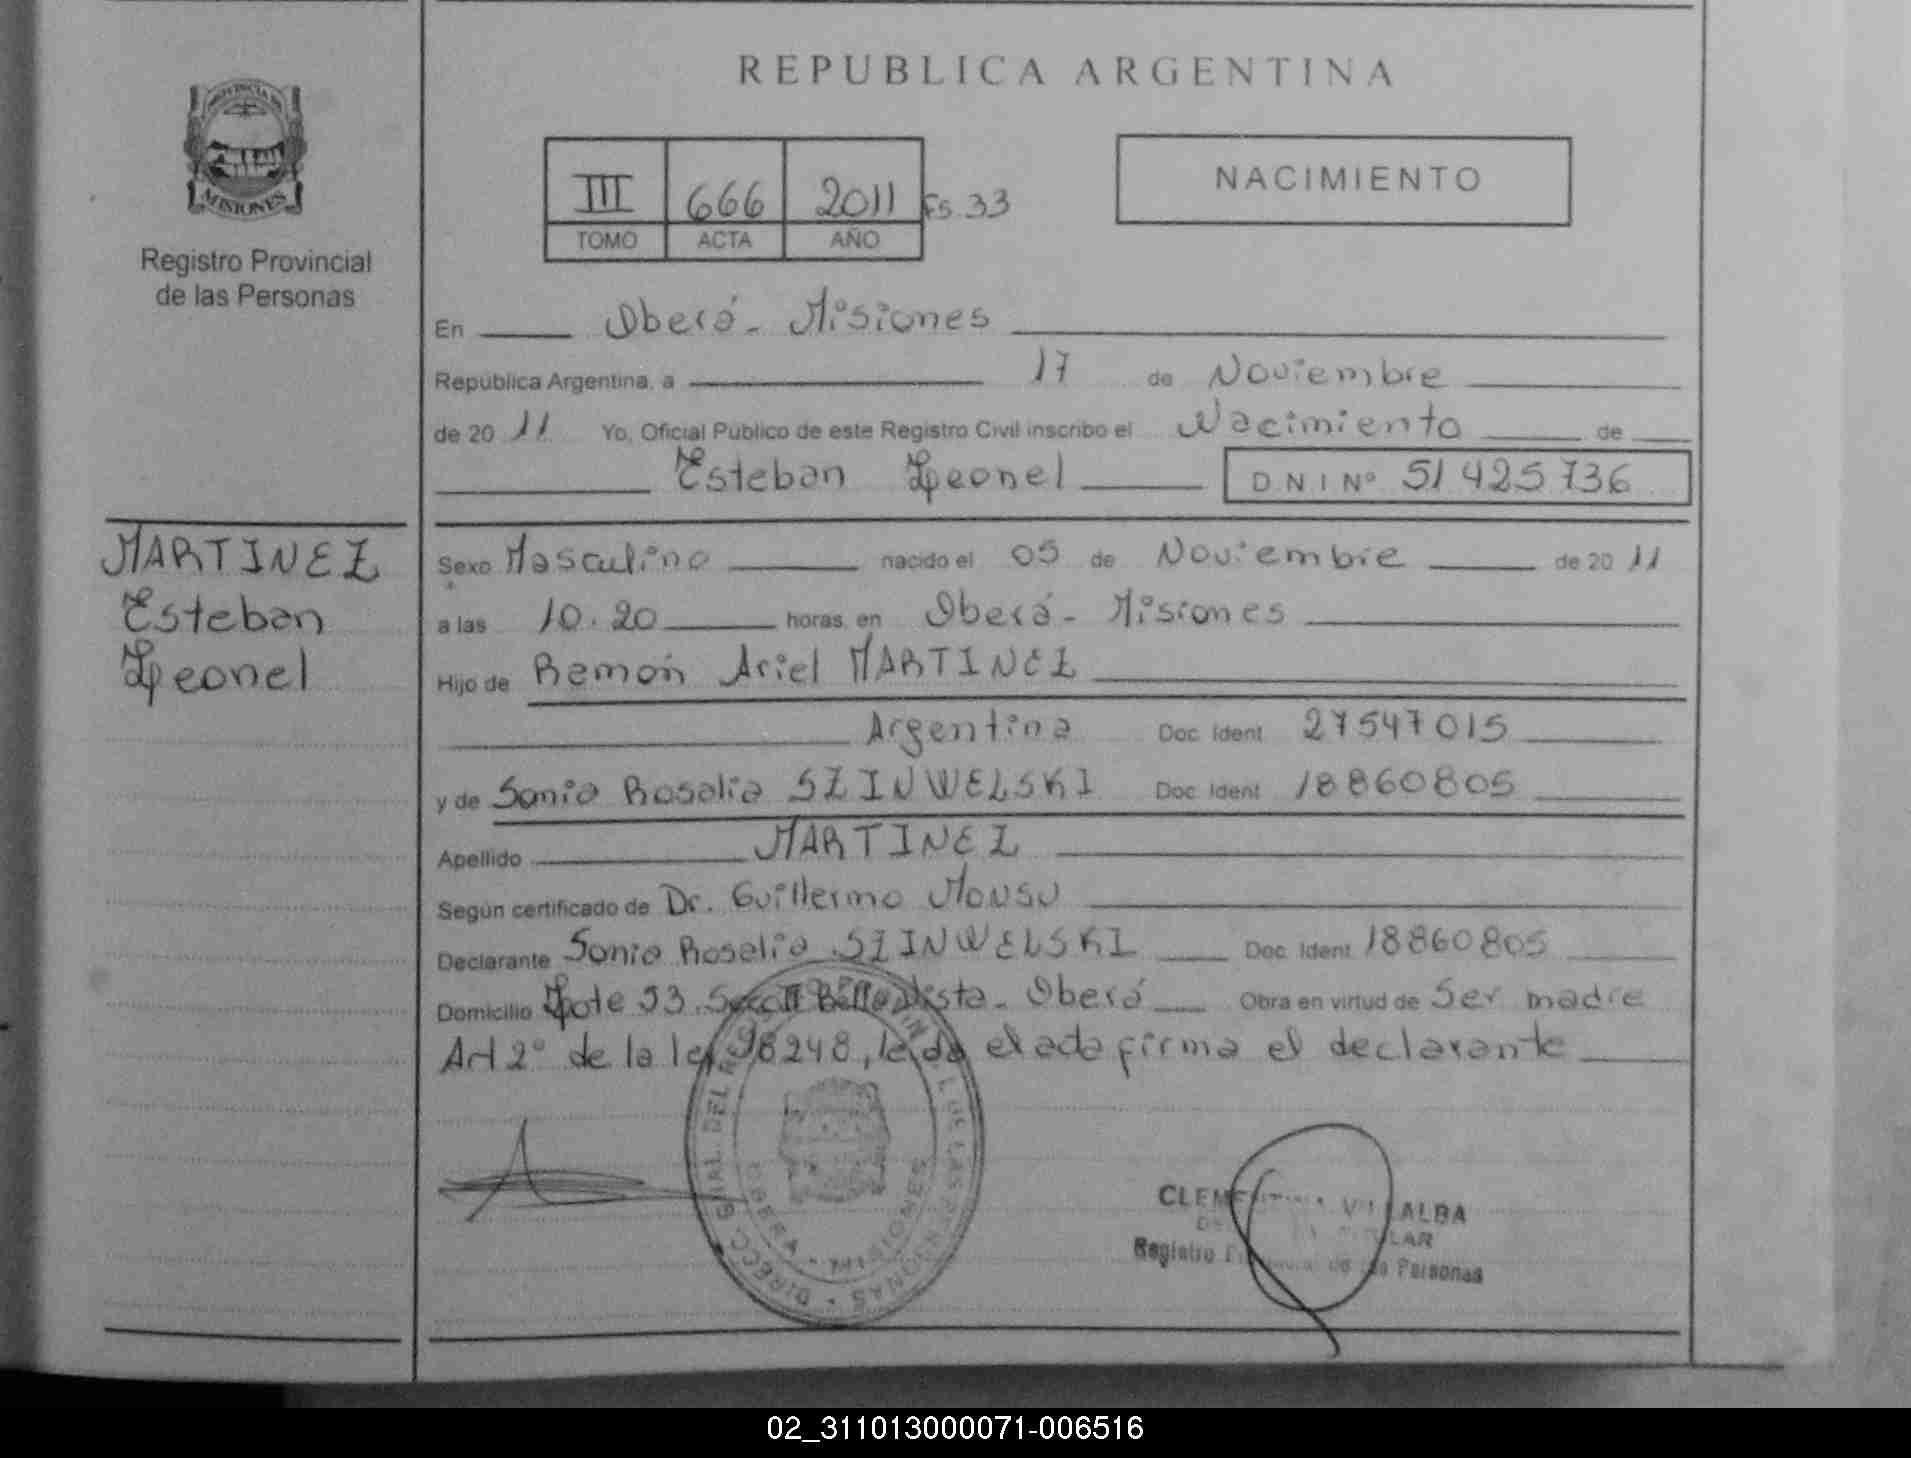 REPUBLICA ARGENTINA
PROVINCIA DE
MISIONES
Registro Provincial
de las Personas
III 666 2011 Fs. 33
TOMO ACTA AÑO
NACIMIENTO
En Oberá - Misiones
República Argentina, a 17 de Noviembre
de 20 11 Yo, Oficial Público de este Registro Civil inscribo el Nacimiento de
Esteban Leonel DNI Nº 51 425 736
MARTINEZ
Esteban
Leonel
Sexo Masculino nacido el 05 de Noviembre de 20 11
a las 10.20 horas, en Oberá - Misiones
Hijo de Ramón Ariel MARTINEZ
Argentina Doc. Ident. 27547015
y de Sonia Rosalia SZINWELSKI Doc. Ident. 18860805
Apellido MARTINEZ
Según certificado de Dr. Guillermo Monsu
Declarante Sonia Rosalia SZINWELSKI Doc. Ident. 18860805
Domicilio Lote 53. Secc II Bella Vista - Oberá Obra en virtud de Ser madre
Art 2º de la ley 18248, leida el acta firma el declarante
OBERA - MISIONES
VILLALBA
Registro de las Personas
02_311013000071-006516